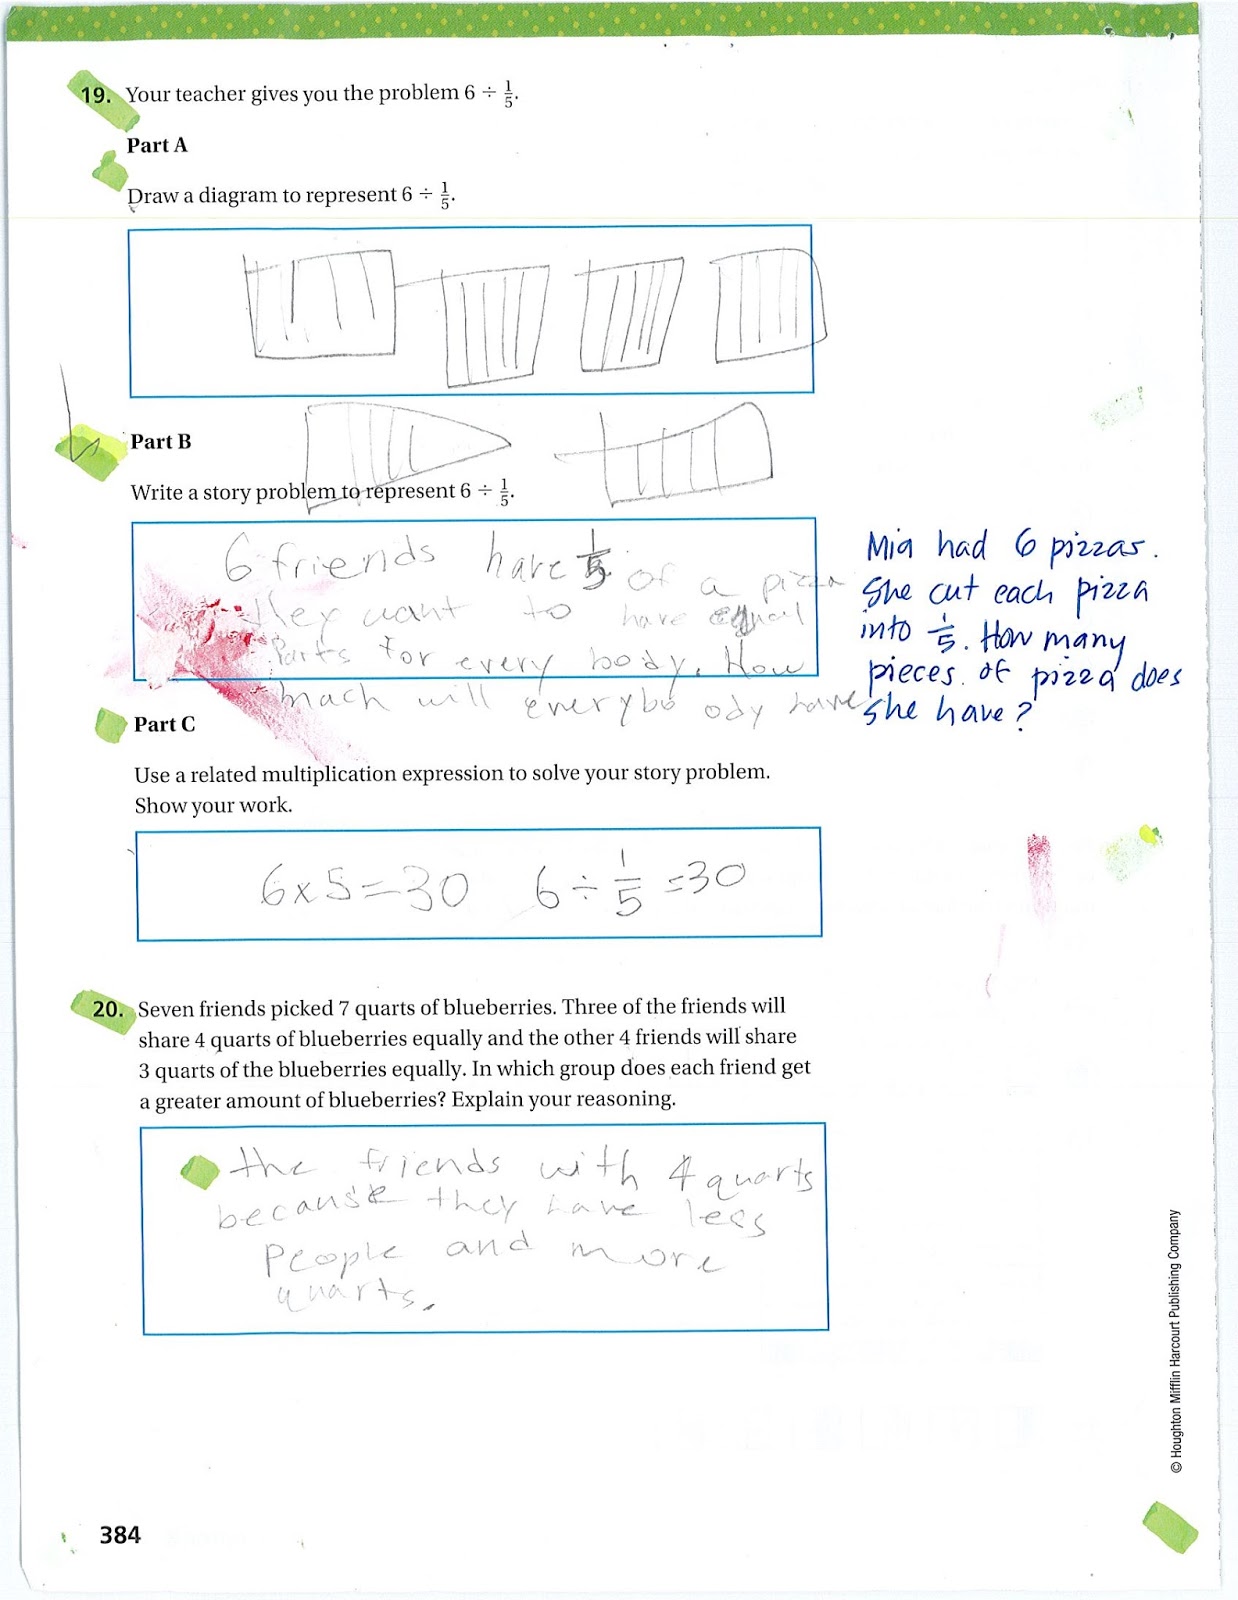 19. Your teacher gives you the problem 6 ÷ 1/5.
Part A
Draw a diagram to represent 6 ÷ 1/5.
Part B
Write a story problem to represent 6 ÷ 1/5.
6 friends have 1/5 of a pizza
they want to have equal
Parts for every body. How
mach will everybo ody have
Mia had 6 pizzas.
She cut each pizza
into 1/5. How many
pieces of pizza does
she have?
Part C
Use a related multiplication expression to solve your story problem.
Show your work.
6x5=30 6 ÷ 1/5 =30
20. Seven friends picked 7 quarts of blueberries. Three of the friends will
share 4 quarts of blueberries equally and the other 4 friends will share
3 quarts of the blueberries equally. In which group does each friend get
a greater amount of blueberries? Explain your reasoning.
the friends with 4 quarts
because they have less
People and more
quarts.
© Houghton Mifflin Harcourt Publishing Company
384